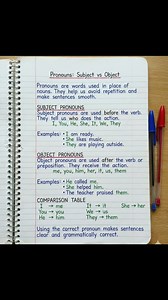 Pronouns: Subject vs Object
Pronouns are words used in place of
nouns. They help us avoid repetition and
make sentences smooth.
SUBJECT PRONOUNS
Subject pronouns are used before the verb.
They tell us who does the action.
I, You, He, She, It, We, They
Examples: • I am ready.
• She likes music.
• They are playing outside.
OBJECT PRONOUNS
Object pronouns are used after the verb or
preposition. They receive the action.
me, you, him, her, it, us, them
Examples: • He called me.
• She helped him.
• The teacher praised them.
COMPARISON TABLE
I → me It → it She → her
You → you We → us
He → him They → them
Using the correct pronoun makes sentences
clear and grammatically correct.